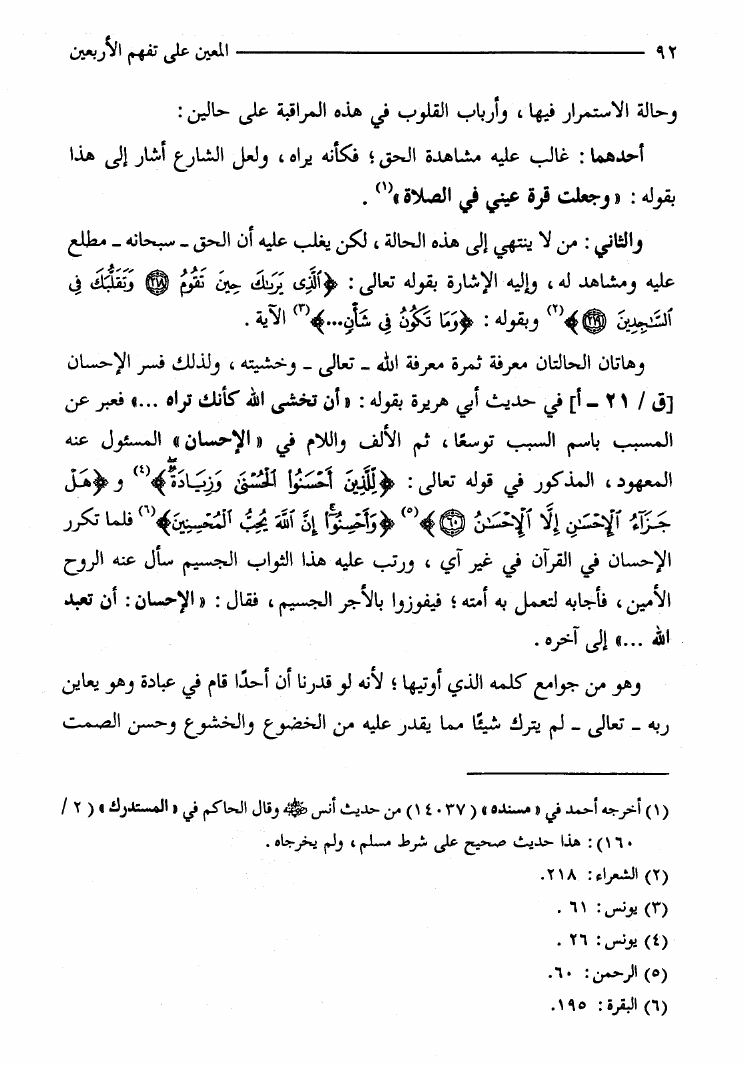 ٩٢ المعين على تفهم الأربعين
وحالة الاستمرار فيها، وأرباب القلوب في هذه المراقبة على حالين:
أحدهما: غالب عليه مشاهدة الحق؛ فكأنه يراه، ولعل الشارع أشار إلى هذا
بقوله: «وجعلت قرة عيني في الصلاة»(١).
والثاني: من لا ينتهي إلى هذه الحالة، لكن يغلب عليه أن الحق - سبحانه - مطلع
عليه ومشاهد له، وإليه الإشارة بقوله تعالى: ﴿ٱلَّذِى يَرَىٰكَ حِينَ تَقُومُ ۝٢١٨ وَتَقَلُّبَكَ فِى
ٱلسَّـٰجِدِينَ ۝٢١٩﴾(٢) وبقوله: ﴿وَمَا تَكُونُ فِى شَأْنٍ...﴾(٣) الآية.
وهاتان الحالتان معرفة ثمرة معرفة الله - تعالى - وخشيته، ولذلك فسر الإحسان
[ق / ٢١ - أ] في حديث أبي هريرة بقوله: «أن تخشى الله كأنك تراه ...» فعبر عن
المسبب باسم السبب توسعًا، ثم الألف واللام في «الإحسان» المسئول عنه
المعهود، المذكور في قوله تعالى: ﴿لِلَّذِينَ أَحْسَنُوا۟ ٱلْحُسْنَىٰ وَزِيَادَةٌ﴾(٤) و﴿هَلْ
جَزَآءُ ٱلْإِحْسَـٰنِ إِلَّا ٱلْإِحْسَـٰنُ ۝٦٠﴾(٥) ﴿وَأَحْسِنُوٓا۟ إِنَّ ٱللَّهَ يُحِبُّ ٱلْمُحْسِنِينَ﴾(٦) فلما تكرر
الإحسان في القرآن في غير آي، ورتب عليه هذا الثواب الجسيم سأل عنه الروح
الأمين، فأجابه لتعمل به أمته؛ فيفوزوا بالأجر الجسيم، فقال: «الإحسان: أن تعبد
الله ...» إلى آخره.
وهو من جوامع كلمه الذي أوتيها؛ لأنه لو قدرنا أن أحدًا قام في عبادة وهو يعاين
ربه - تعالى - لم يترك شيئًا مما يقدر عليه من الخضوع والخشوع وحسن الصمت
(١) أخرجه أحمد في «مسنده» (١٤٠٣٧) من حديث أنس رضي الله عنه وقال الحاكم في «المستدرك» (٢/
١٦٠): هذا حديث صحيح على شرط مسلم، ولم يخرجاه.
(٢) الشعراء: ٢١٨.
(٣) يونس: ٦١.
(٤) يونس: ٢٦.
(٥) الرحمن: ٦٠.
(٦) البقرة: ١٩٥.